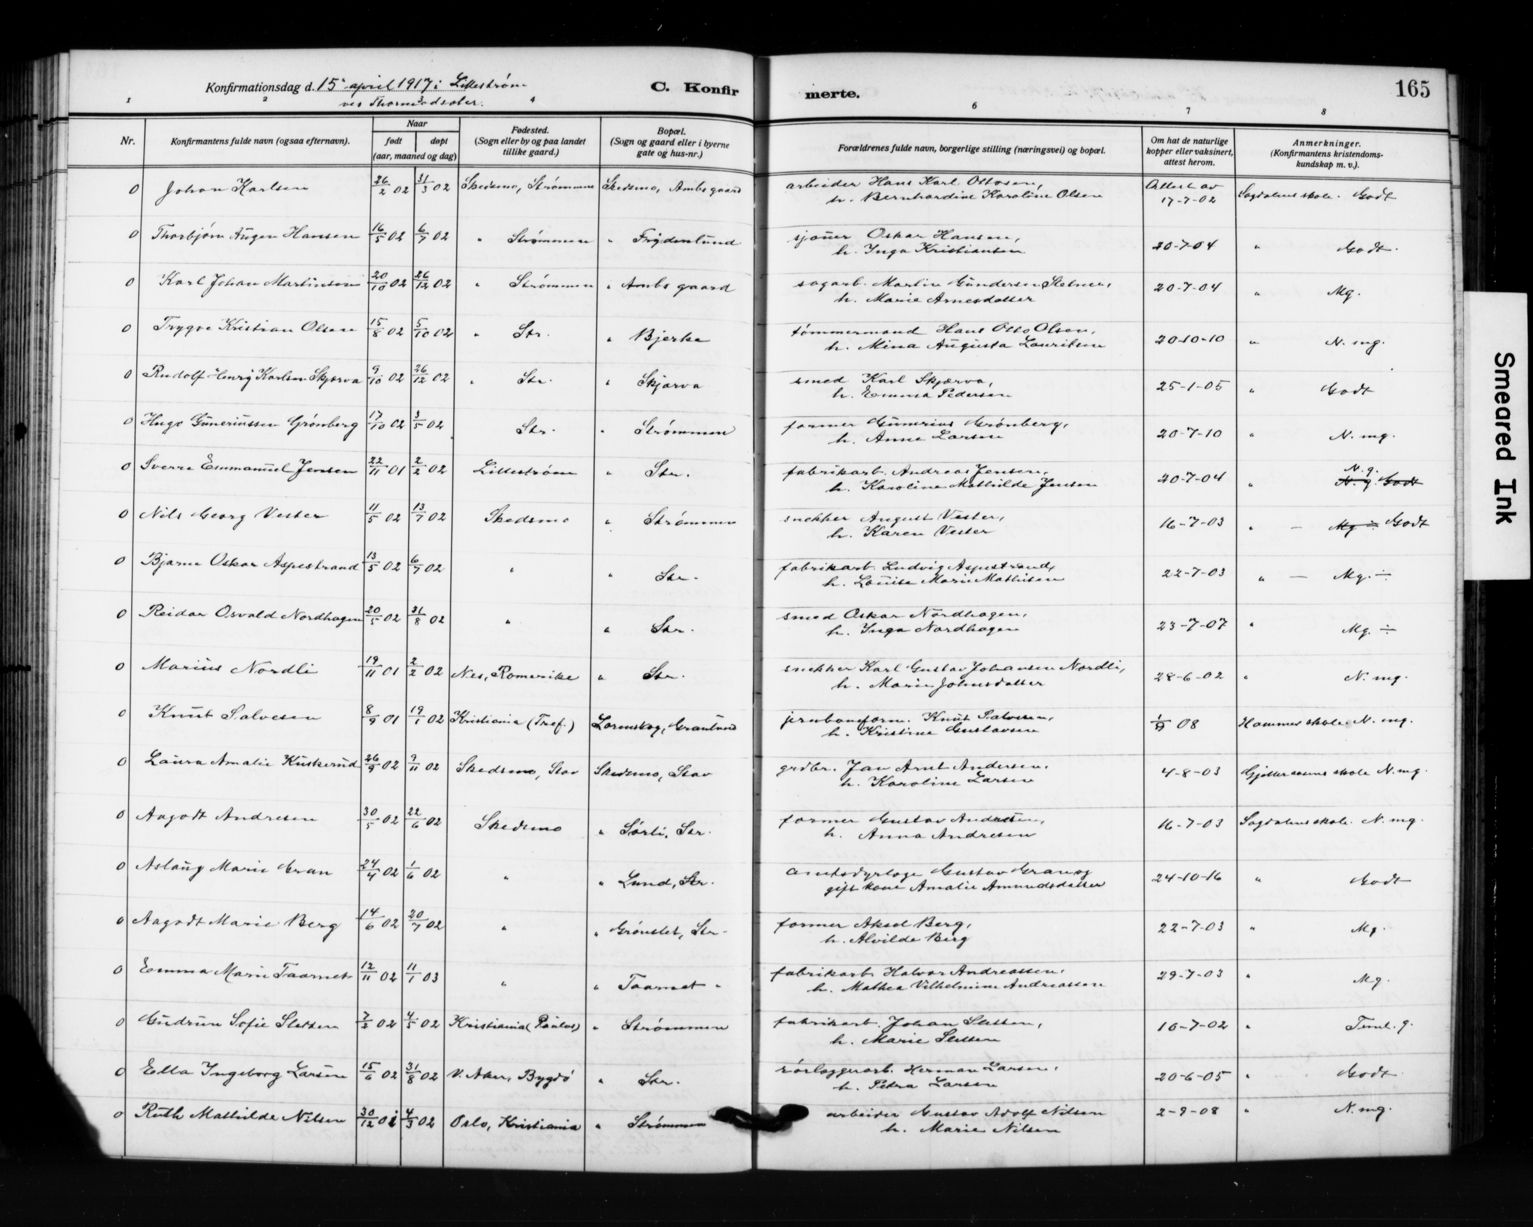 Konfirmationsdag d. 15' april 1917 i Lillestrøm C. Konfirmerte. 165
1 2 3 4 6 7 8
Nr. Konfirmantens fulde navn (ogsaa efternavn). Naar født døpt (aar, maaned og dag) Fødested. (Sogn eller by og paa landet tillike gaard.) Bopæl. (Sogn og gaard eller i byerne gate og hus-nr.) Forældrenes fulde navn, borgerlige stilling (næringsvei) og bopæl. Om hat de naturlige kopper eller vaksinert, attest herom. Anmerkninger. (Konfirmantens kristendomskundskap m. v.).
0 Johan Karlsen 26/2 02 31/3 02 Skedsmo, Strømmen Skedsmo, Ambs gaard arbeider Hans Karl Ottosen, Attest av Sagdalens skole. Godt
h. Bernhardine Karoline Olsen 17-7-02
0 Thorbjørn Augen Hansen 16/5 02 6/7 02 " Strømmen " Frydenlund sjauer Oskar Hansen, 20-7-04 " Godt.
h. Inga Kristiansen
0 Karl Johan Martinsen 20/10 02 26/12 02 " Strømmen " Ambs gaard sagarb. Martin Gundersen 20-7-04 " Mg.
h. Marie Arnesdatter
0 Trygve Kristian Olsen 15/8 02 5/10 02 " Str. " Bjerke tømmermand Hans Otto Olsen, 20-10-10 " N. mg.
h. Mina Augusta Lauritsen
0 Rudolf Henry Karlsen Skjærva 9/10 02 26/12 02 " Str. " Skjærva smed Karl Skjærva, 25-1-05 " Godt
h. Emma Pedersen
0 Hugo Guneriussen Grønberg 17/10 02 3/5 02 Str. " Strømmen former Gunerius Grønberg, 20-7-10 " N. mg.
h. Anna Larsen
0 Sverre Emmanuel Jensen 22/11 01 2/2 02 Lillestrøm " Str. fabrikarb. Andreas Jensen, 20-7-04 " N. g. N. g. Godt
h. Karoline Mathilde Jensen
0 Nils Georg Vester 11/5 02 13/7 02 Skedsmo " Strømmen snekker August Vester, 16-7-03 " — Mg ÷ Godt
h. Karen Vester
0 Bjarne Oskar Aspestrand 13/5 02 6/7 02 " " Str. fabrikarb. Ludvig Aspestrand, 22-7-03 " — Mg. ÷
h. Louise Marie Mathisen
0 Reidar Osvald Nordhagen 20/5 02 31/8 02 " " Str. smed Oskar Nordhagen, 23-7-07 " Mg. ÷
h. Inga Nordhagen
0 Marius Nordli 19/11 01 2/2 02 Nes, Romerike " Str. snekker Karl Gustav Johansen Nordli, 28-6-02 " N. mg.
h. Marie Johnsdatter
0 Knut Salvesen 8/9 01 19/1 02 Kristiania (Tref.) Lørenskog, Granlund jernbaneform. Knut Salvesen, 08 Hammer skole N. mg.
h. Kristine Gustavsen
0 Laura Amalie Kuskerud 26/9 02 9/11 02 Skedsmo, Stav Skedsmo, Stav grdbr. Jan Arnt Andersen, 4-8-03 Gjelleraasens skole N. mg.
h. Karoline Larsen
0 Aagodt Andresen 30/5 02 22/6 02 Skedsmo " Sørli, Str. former Gustav Andresen, 16-7-03 Sagdalens skole. N. mg.
h. Anna Andresen
0 Aslaug Marie Gran 24/4 02 1/6 02 " " Lund, Str. amtsdyrlæge Gustav Gran og 24-10-16 " Godt
gift kone Amalie Amundsdatter
0 Aagodt Marie Berg 14/6 02 20/7 02 " " Grønslet, Str. former Aksel Berg, 22-7-03 " Mg.
h. Alvilde Berg
0 Emma Marie Taarnet 12/11 02 11/1 03 " " Taarnet " fabrikarb. Halvor Andreassen, 29-7-03 " Mg.
h. Mathea Vilhelmine Andreassen
0 Gudrun Sofie Sletten 7/2 02 4/5 02 Kristiania (Paulus) " Strømmen fabrikarb. Johan Sletten, 10-7-02 " Teml. g.
h. Marie Sletten
0 Ella Ingeborg Larsen 15/6 02 31/8 02 V. Aker, Bygdø " Str. rørlæggerarb. Herman Larsen, 20-6-05 " Godt
h. Petra Larsen
0 Ruth Mathilde Nilsen 30/12 01 4/3 02 Oslo, Kristiania " Strømmen arbeider Gustav Adolf Nilsen 2-9-08 " N. mg.
h. Marie Nilsen
Smeared Ink